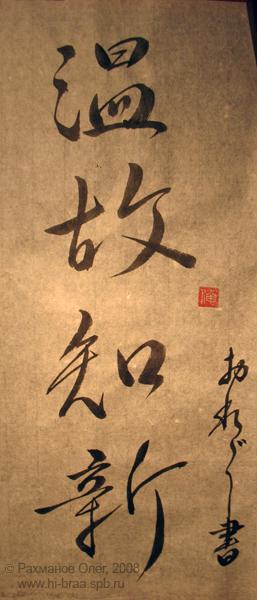 温故知新
書
© Рахманов Олег, 2008
www.hi-braa.spb.ru